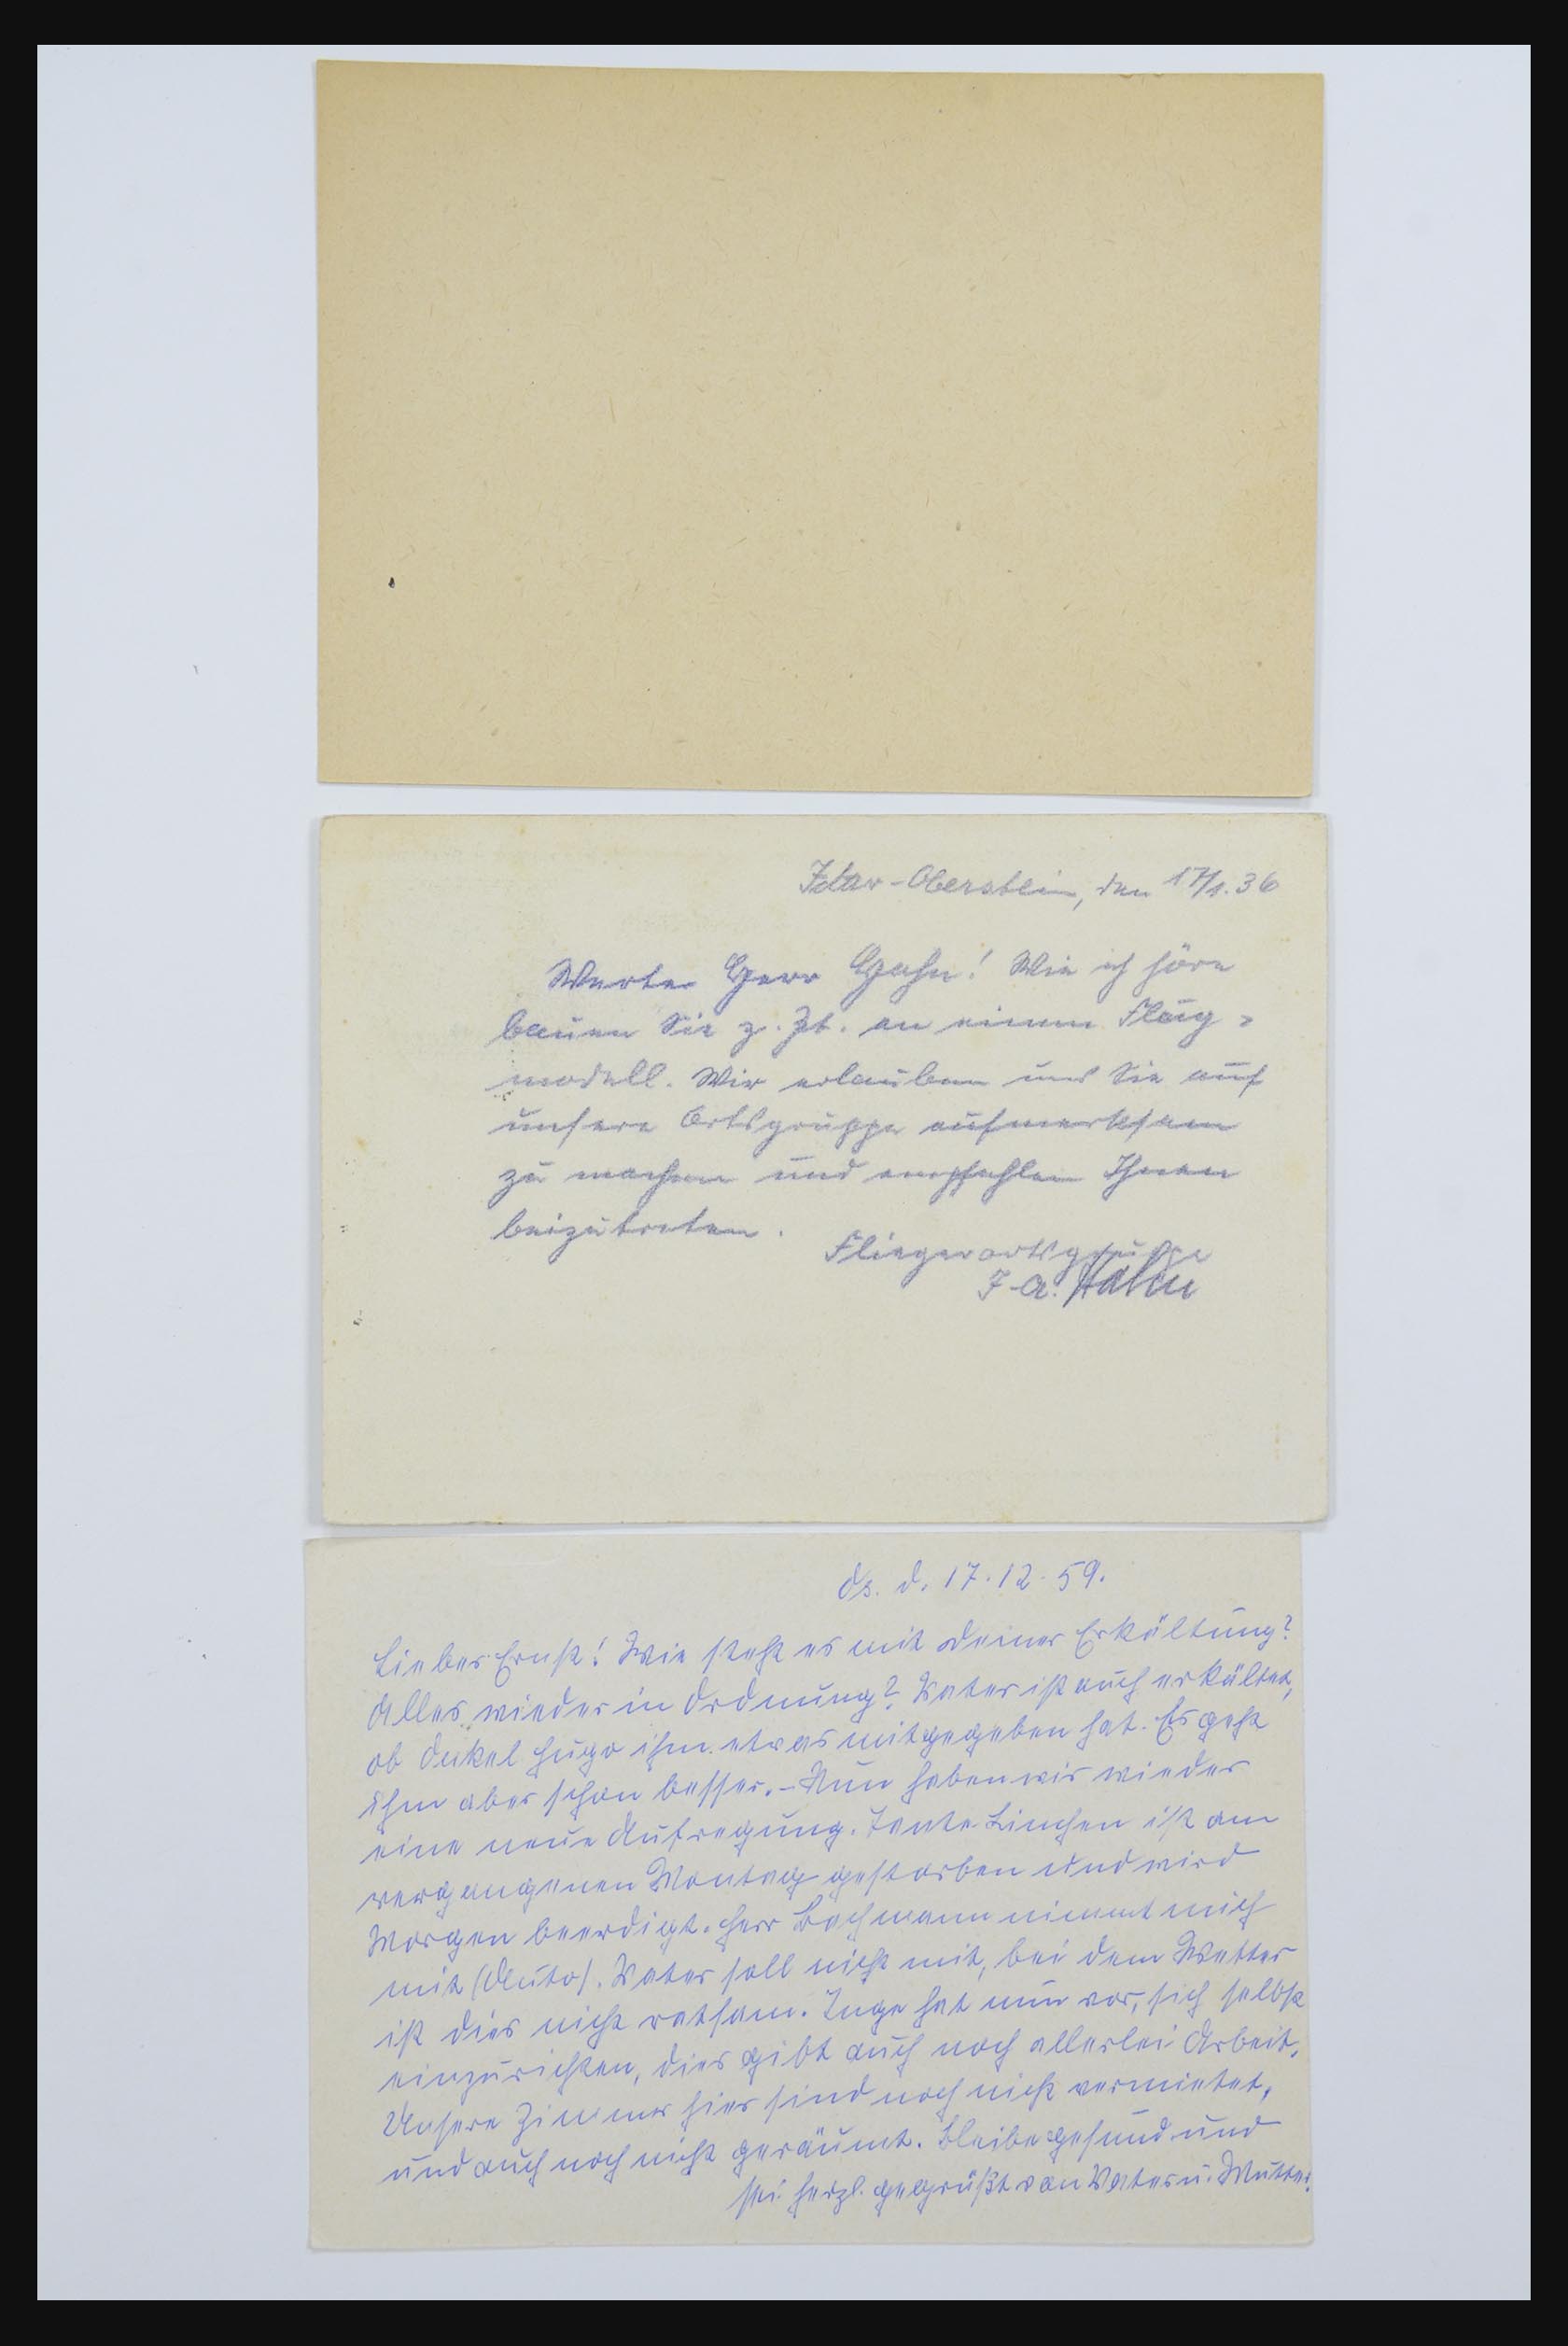 Idar-Oberstein, den 17/1.36
Werter Herr Hahn! Wie ich höre
bauen Sie z. Zt. an einem Flug-
modell. Wir erlauben uns Sie auf
unsere Ortsgruppe aufmerksam
zu machen und empfehlen Ihnen
beizutreten.
Fliegerortsgruppe
I. A. Hahn
d. 17.12.59.
Lieber Ernst! Wie steht es mit deiner Erkältung?
Alles wieder in Ordnung? Vater ist auch erkältet,
ob Onkel Hugo ihm etwas mitgegeben hat. Es geht
ihm aber schon besser. - Nun haben wir wieder
eine neue Aufregung. Tante Linchen ist am
vergangenen Montag gestorben und wird
Morgen beerdigt. Herr Bachmann nimmt mich
mit (Auto). Vater soll nicht mit, bei dem Wetter
ist dies nicht ratsam. Inge hat nun vor, sich selbst
einzurichten, dies gibt auch noch allerlei Arbeit.
Unsere Zimmer hier sind noch nicht vermietet,
und auch noch nicht geräumt. Bleibe gesund und
sei herzl. gegrüßt von Vater u. Mutter.